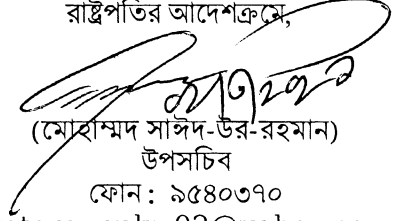 রাষ্ট্রপতির আদেশক্রমে,
(মোহাম্মদ সাঈদ-উর-রহমান)
উপসচিব
ফোন : ৯৫৪০৩৭০